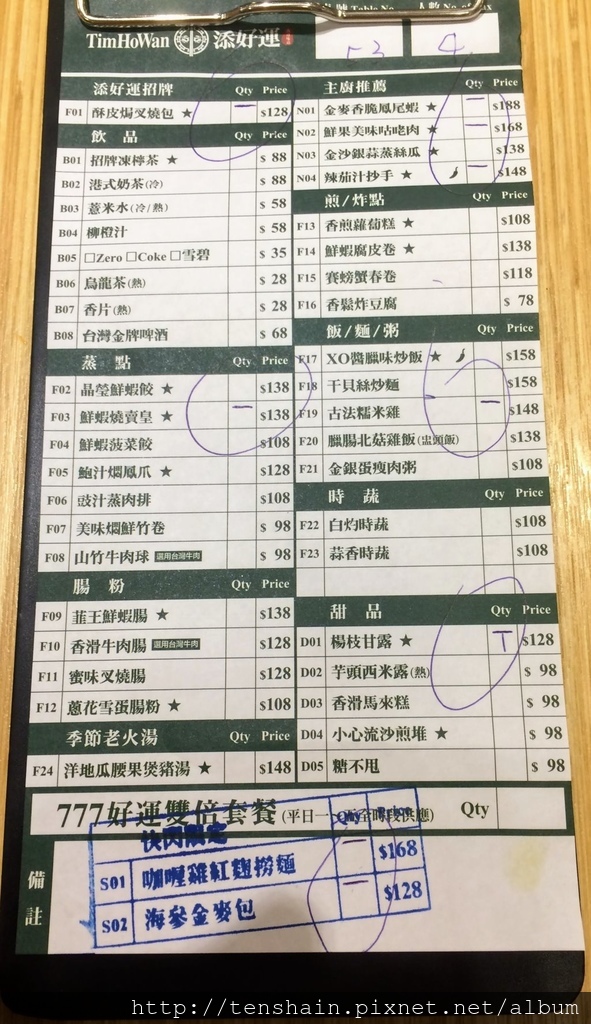 TimHoWan 添好運
53 4
添好運招牌 Qty Price
F01 酥皮焗叉燒包 ★ 一 $128
飲品 Qty Price
B01 招牌凍檸茶 ★ $ 88
B02 港式奶茶(冷) $ 88
B03 薏米水(冷/熱) $ 58
B04 柳橙汁 $ 58
B05 □Zero □Coke □雪碧 $ 35
B06 烏龍茶(熱) $ 28
B07 香片(熱) $ 28
B08 台灣金牌啤酒 $ 68
蒸點 Qty Price
F02 晶瑩鮮蝦餃 ★ $138
F03 鮮蝦燒賣皇 ★ 一 $138
F04 鮮蝦菠菜餃 $108
F05 鮑汁燜鳳爪 ★ $128
F06 豉汁蒸肉排 $108
F07 美味燜鮮竹卷 $ 98
F08 山竹牛肉球 選用台灣牛肉 $ 98
腸粉 Qty Price
F09 韮王鮮蝦腸 ★ $138
F10 香滑牛肉腸 選用台灣牛肉 $128
F11 蜜味叉燒腸 $128
F12 蔥花雪蛋腸粉 ★ $108
季節老火湯 Qty Price
F24 洋地瓜腰果煲豬湯 ★ $148
主廚推薦 Qty Price
N01 金麥香脆鳳尾蝦 ★ 一 $188
N02 鮮果美味咕咾肉 ★ 一 $168
N03 金沙銀蒜蒸絲瓜 ★ $138
N04 辣茄汁抄手 ★ 一 $148
煎/炸點
F13 香煎蘿蔔糕 ★ $108
F14 鮮蝦腐皮卷 ★ $138
F15 賽螃蟹春卷 $118
F16 香鬆炸豆腐 $ 78
飯/麵/粥 Qty Price
F17 XO醬臘味炒飯 ★ $158
F18 干貝絲炒麵 $158
F19 古法糯米雞 一 $148
F20 臘腸北菇雞飯(盅頭飯) $138
F21 金銀蛋瘦肉粥 $108
時蔬 Qty Price
F22 白灼時蔬 $108
F23 蒜香時蔬 $108
甜品 Qty Price
D01 楊枝甘露 ★ T $128
D02 芋頭西米露(熱) $ 98
D03 香滑馬來糕 $ 98
D04 小心流沙煎堆 ★ $ 98
D05 糖不甩 $ 98
777好運雙倍套餐(平日一 全時段供應) Qty
備註
快閃限定 Qty Price
S01 咖喱雞紅麴撈麵 一 $168
S02 海參金麥包 一 $128
http://tenshain.pixnet.net/album